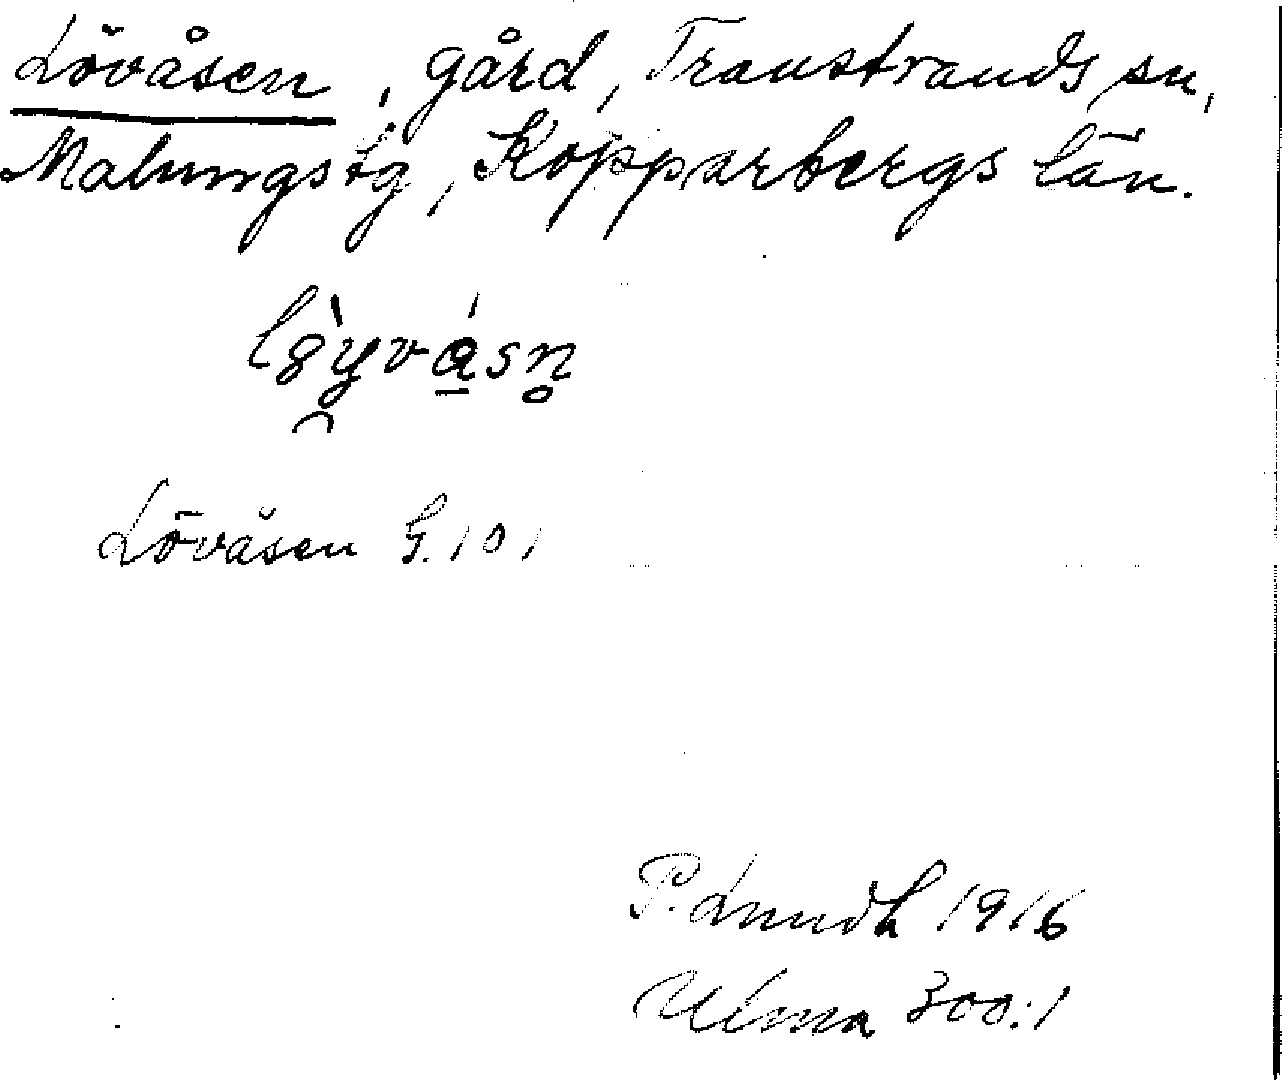 Lövåsen, gård, Transtrands sn,
Malungs tg, Kopparbergs län.
Lövåsen G. 101
P. Lundh 1916
Ulma 300:1